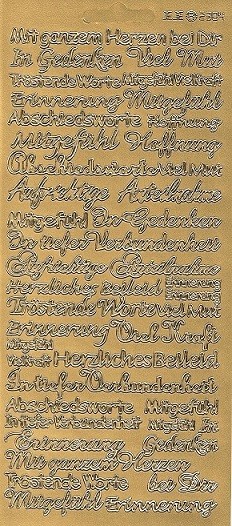 Mit ganzem Herzen bei Dir
In Gedenken Viel Mut
Tröstende Worte Mitgefühl Viel Kraft
Erinnerung Mitgefühl
Abschiedsworte Hoffnung
Mitgefühl Hoffnung
Abschiedsworte Viel Mut
Aufrichtige Anteilnahme
Mitgefühl In Gedenken
In tiefer Verbundenheit
Aufrichtige Anteilnahme
Herzliches Beileid Erinnerung Erinnerung
Tröstende Worte Viel Mut
Erinnerung Viel Kraft
Mitgefühl
Viel Kraft Herzliches Beileid
In tiefer Verbundenheit
Abschiedsworte Mitgefühl
In tiefer Verbundenheit Mitgefühl In
Erinnerung Gedenken
Mit ganzem Herzen
Tröstende Worte bei Dir
Mitgefühl Erinnerung